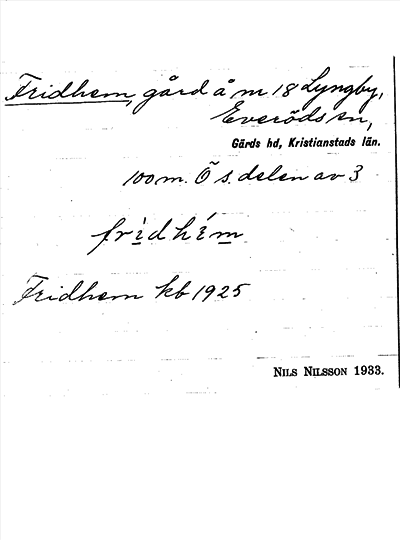 Fridhem, gård å m 18 Lyngby,
Everöds sn,
Gärds hd, Kristianstads län.
100 m. Ö s. delen av 3
fridhem
Fridhem kb 1925
NILS NILSSON 1933.